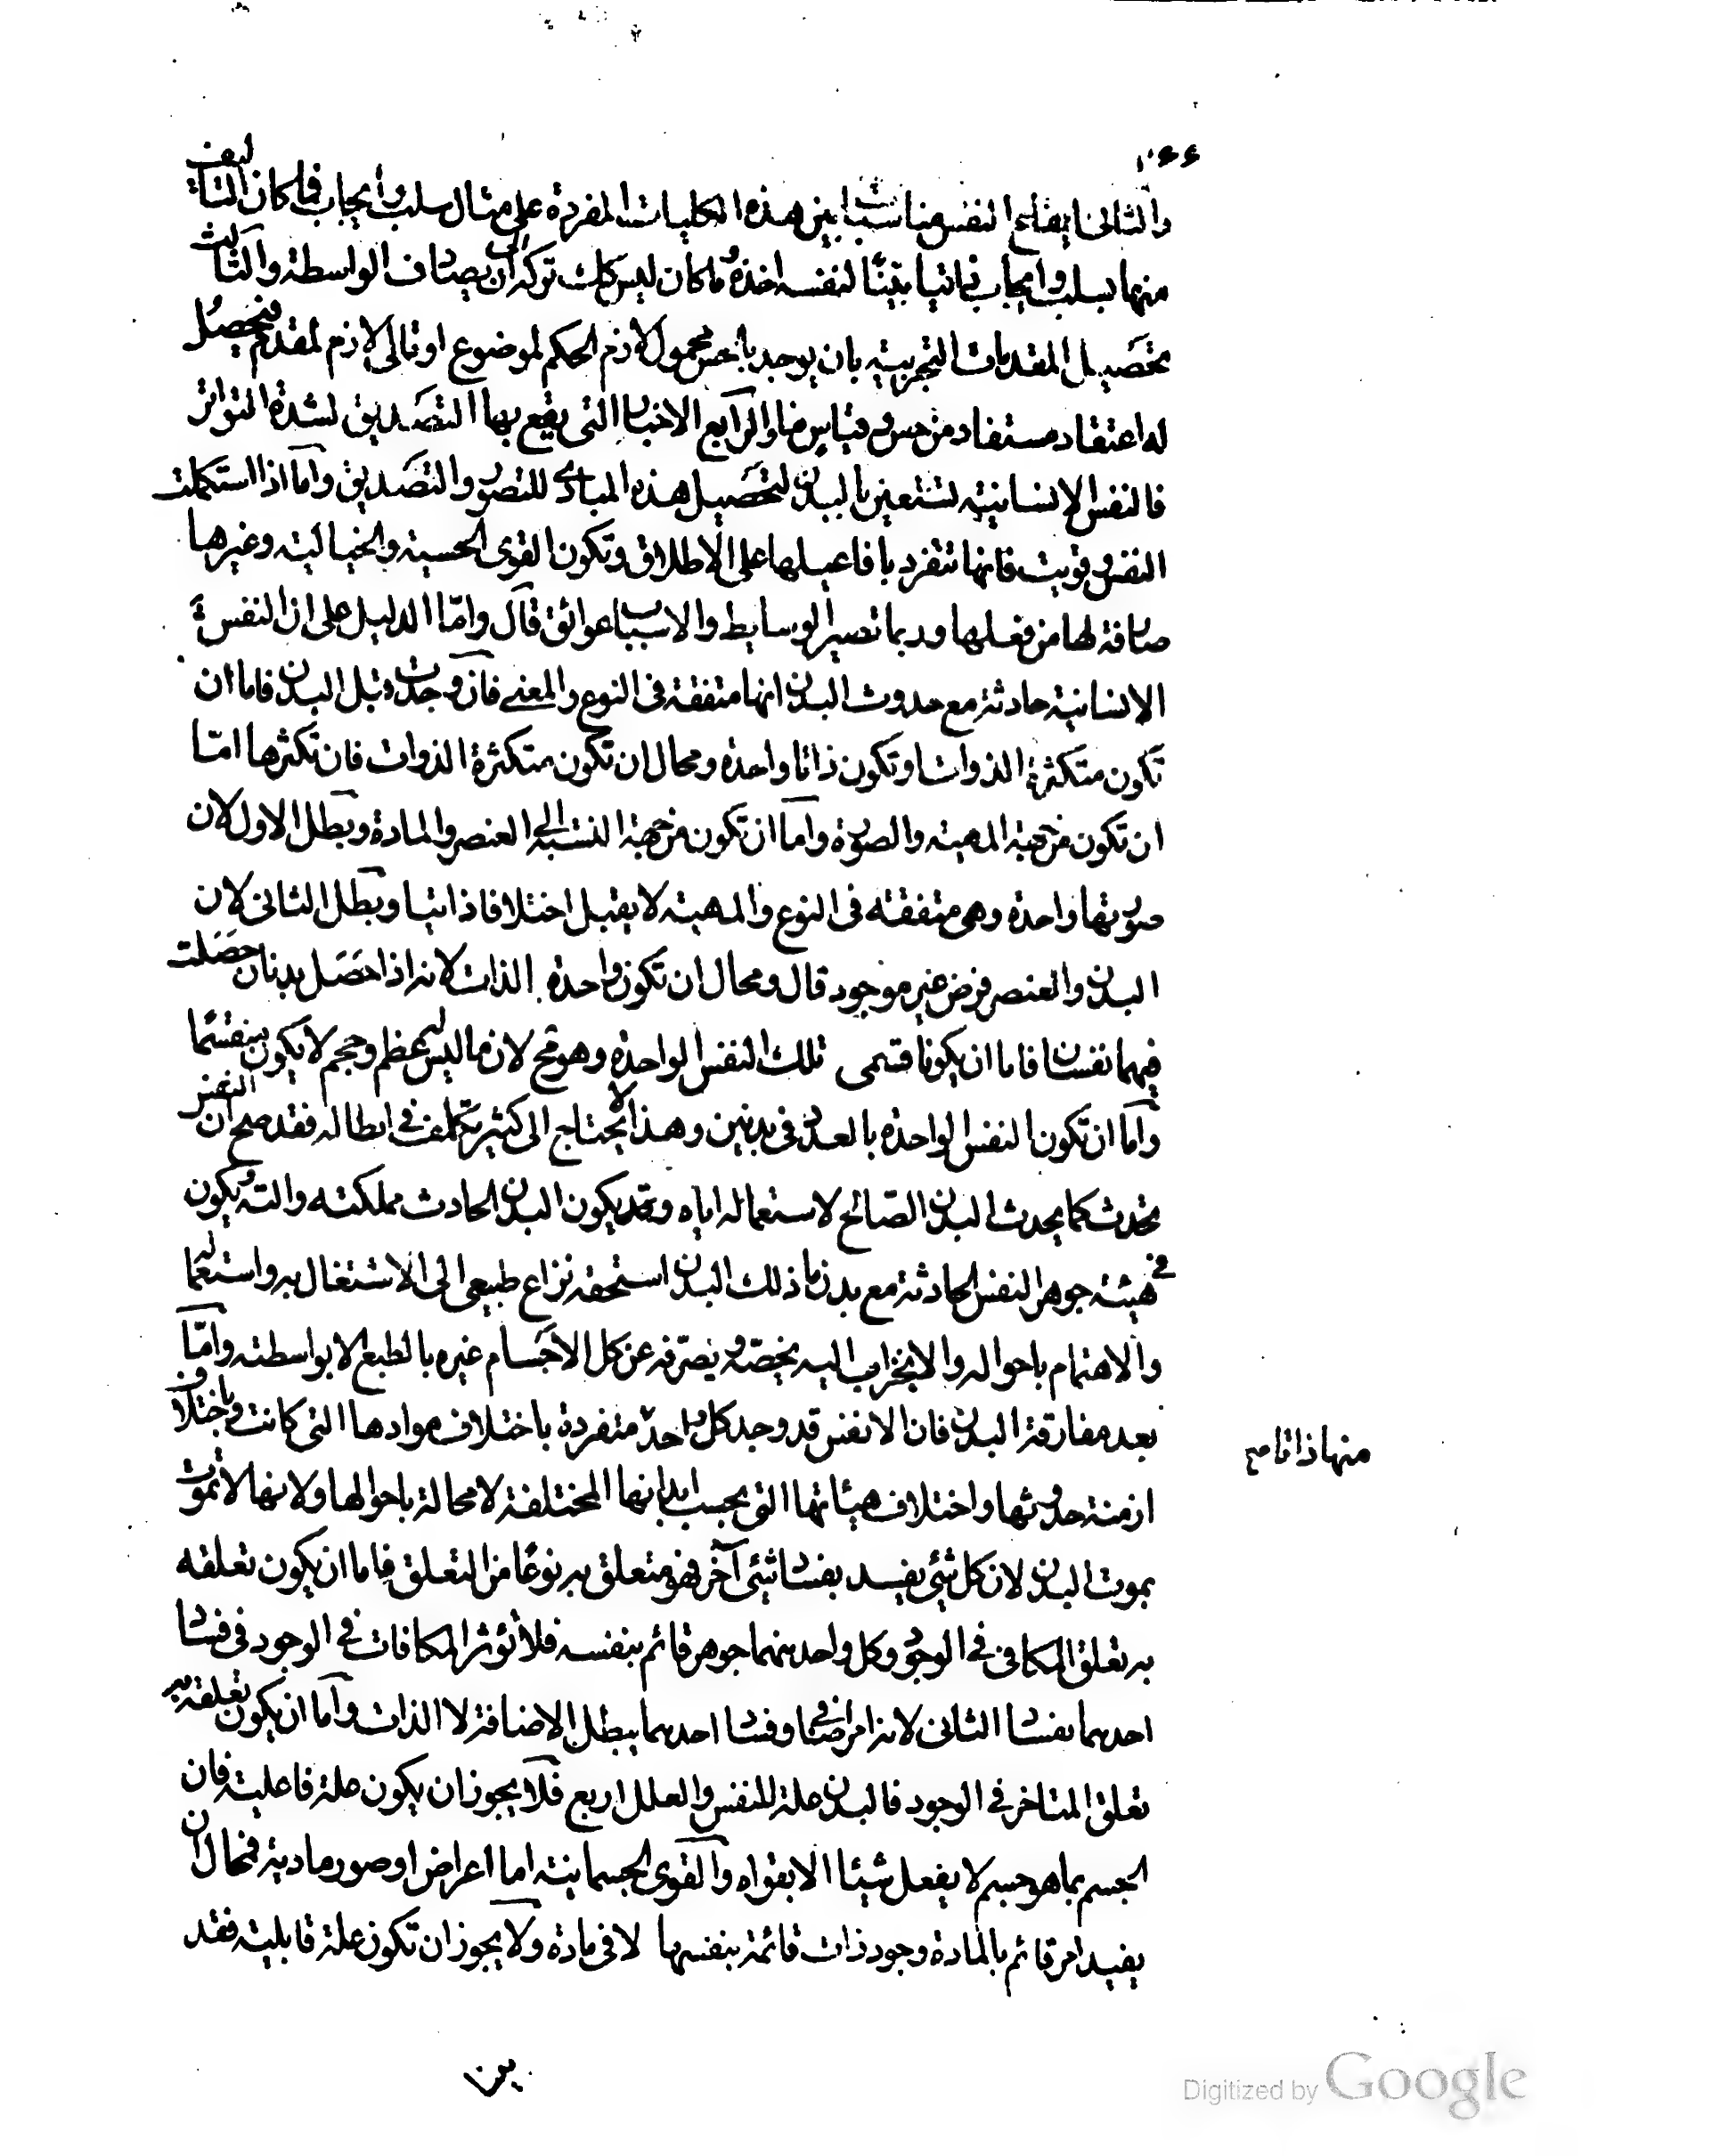 والثانی ايقاع النفس مناسبات بين هذه الكليات المفردة على مثال سلب وايجاب فما كان التاليف
منها بسلب وايجاب ذاتيا بينًا لنفسه اخذه وما كان ليس كذلك تركه الى ان يصادف الواسطة والثالث
تحصيل المقدمات التجربيتة بان يوجد بالحس محمول لازم الحكم لموضوع او تالی لازم لمقدم فتحصل
له اعتقاد مستفاد من حس وقياس ما والرابع الاخبار التی يقع بها التصديق لشدة التواتر
فالنفس الانسانية تستعين بالبدن لتحصيل هذه المبادی للتصور والتصديق واما اذا استكملت
النفس وقويت فانها تنفرد بافاعيلها على الاطلاق وتكون القوى الحسية والخيالية وغيرها
صارفة لها من فعلها وربما تصير الوسايط والاسباب عوائق قال واما الدليل على ان النفس
الانسانية حادثة مع حدوث البدن انها متفقة فی النوع والمعنى فان وجدت قبل البدن فاما ان
تكون متكثرة الذوات او تكون ذاتا واحدة ومحال ان تكون متكثرة الذوات فان تكثرها امّا
ان تكون من جهة المهية والصورة واما ان تكون من جهة النسبة الى العنصر والمادة وبطل الاول لان
صورتها واحدة وهی متفقة فی النوع والمهية لا يقبل اختلافا ذاتيا وبطل الثانی لان
البدن والعنصر فرض غير موجود قال ومحال ان تكون واحدة الذات لانه اذا حصل بدنان حصلت
فيهما نفسان فاما ان يكونا قسمی تلك النفس الواحدة وهو مح لان ما ليس له عظم وحجم لا يكون منقسمًا
واما ان تكون النفس الواحدة بالعدد فی بدنين وهذا لا يحتاج الى كثير تكلف فی ابطاله فقد صح ان النفس
تحدث كما يحدث البدن الصالح لاستعماله اياه وقد يكون البدن الحادث مملكته والته ويكون
فی هيئة جوهر النفس الحادثة مع بدن ما ذلك البدن استحقه نزاع طبيعی الى الاشتغال به واستعماله
والاهتمام باحواله والانجذاب اليه يخصه ويصرفه عن كل الاجسام غيره بالطبع لا بواسطته وامّا
بعد مفارقة البدن فان الانفس قد وجد كل واحدٍ متفردة باختلاف موادها التی كانت وباختلاف
منها ذاتا صح
ازمنة حدوثها واختلاف هيئاتها التی بحسب ابدانها المختلفة لا محالة باحوالها ولانها لا تموت
بموت البدن لان كل شیء يفسد بفساد شیء آخر فهو متعلق به نوعًا من التعلق فاما ان يكون تعلقه
به تعلق المكافی فی الوجود وكل واحد منهما جوهر قائم بنفسه فلا تؤثر المكافات فی الوجود فی فساد
احدهما بفساد الثانی لانه امر اضافی وفساد احدهما يبطل الاضافة لا الذات واما ان يكون تعلقه به
تعلق المتاخر فی الوجود فالبدن علة للنفس والعلل اربع فلا يجوز ان يكون علة فاعلية فان
الجسم بما هو جسم لا يفعل شيئا الا بقواه والقوى الجسمانية اما اعراض او صور مادية فمحال ان
يفيد امر قائم بالمادة وجود ذات قائمة بنفسها لا فی مادة ولا يجوز ان تكون علة قابلية فقد
بين
Digitized by Google